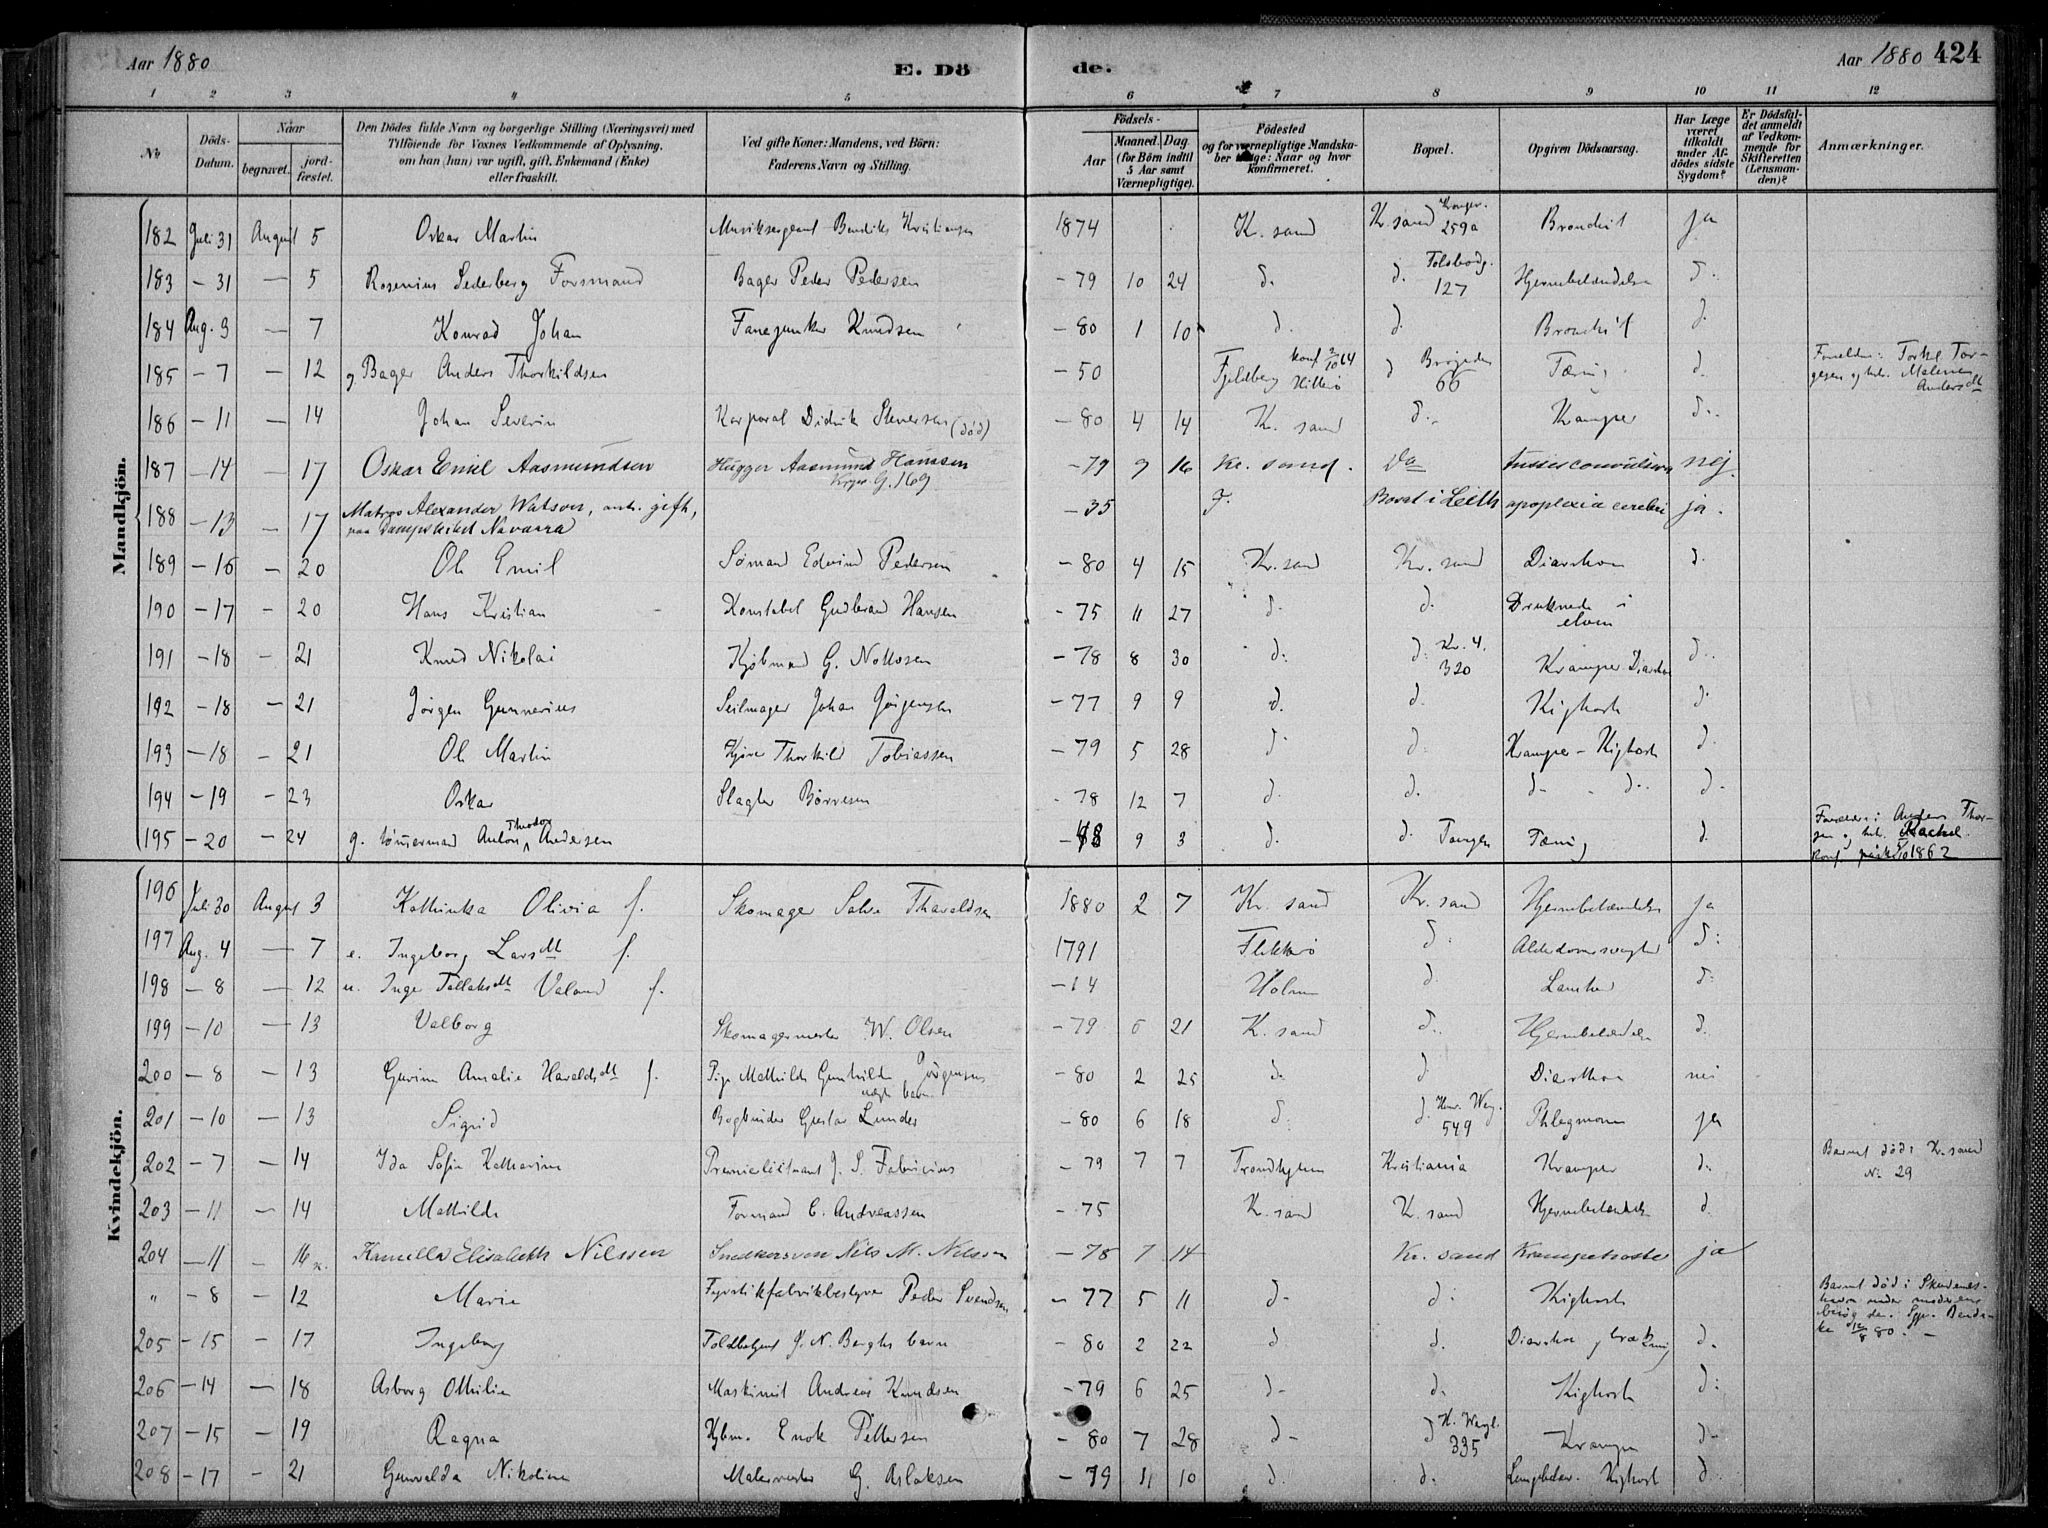 Aar 1880 E. Dö de. Aar 1880 424
1 2 3 4 5 6 7 8 9 10 11 12
No
Döds-Datum.
Naar
begravet. jordfæstet.
Den Dödes fulde Navn og borgerlige Stilling (Næringsvei) med
Tilföiende for Voxnes Vedkommende af Oplysning,
om han (hun) var ugift, gift, Enkemand (Enke)
eller fraskilt.
Ved gifte Koner: Mandens, ved Börn:
Faderens Navn og Stilling.
Födsels-
Aar Maaned. Dag.
(for Börn indtil
5 Aar samt
Værnepligtige).
Födested
og for værnepligtige Mandskaber tillige: Naar og hvor
konfirmeret.
Bopæl.
Opgiven Dödsaarsag.
Har Læge
været
tilkaldt
under Afdödes sidste
Sygdom?
Er Dödsfaldet anmeldt
af Vedkommende for
Skifteretten
(Lensmanden)?
Anmærkninger.
Mandkjön.
182 Juli 31 August 5 Oskar Martin Musiksergeant Bendiks Kristiansen 1874 Kr. sand Kr. sand 259a Bronchit ja
183 - 31 — 5 Rosenius Sederberg Forsmand Bager Peder Pedersen - 79 10 24 d. d. Toldbodg. 127 Hjernebetændelse d.
184 Aug. 3 — 7 Konrad Johan Fanejunker Knudsen - 80 1 10 d. d. Bronchit d.
185 - 7 — 12 g Bager Anders Thorkildsen - 50 Fjeldberg Hitterö konf 2/10 64 d 66 Tæring d. Forældre: Torkel Torgesen og hu. Malene Andersdt
186 - 11 — 14 Johan Severin Korporal Didrik Stenersen (död) - 80 4 14 Kr. sand d. Kramper d.
187 - 14 — 17 Oskar Emil Aasmundsen Hugger Aasmund Hansen G. 169 - 79 9 16 Kr. sand. Do tussis convulsiva nej
188 - 13 — 17 Matros Alexander Watson, ant. gift, paa Dampskibet Navarra - 35 Boende i Leith apoplexia cerebri ja.
189 - 16 — 20 Ole Emil Sömand Edvind Pedersen - 80 4 15 Kr. sand Kr. sand Diarrhoe d.
190 - 17 — 20 Hans Kristian Konstabel Gudbrand Hansen - 75 11 27 d. d. Druknede i elven
191 - 18 - 21 Knud Nikolai Kjöbmand G. Nottosen - 78 8 30 d. d. Kr. 4. 320 Kramper Diarrhoe d.
192 - 18 - 21 Jörgen Gunnerius Seilmager Johan Jörgensen - 77 9 9 d. d. Kighoste d.
193 - 18 - 21 Ole Martin Thorkild Tobiassen - 79 5 28 d d. Kramper - Kighoste d.
194 - 19 - 23 Oskar Slagter Börresen - 78 12 7 d. d. d - d. d.
195 - 20 - 24 g. tömmermand Anton Theodor Andersen - 48 9 3 d. d. Tangen Tæring d. Forældre: Anders Thor- og hu. Rachel. Konf. 1862
Kvindekjön.
196 Juli 30 August 3 Kathinka Olivia f. Skomager Salve Tharaldsen 1880 2 7 Kr. sand Kr. sand Hjernebetændelse ja
197 Aug. 4 — 7 e. Ingeborg Larsdt f. 1791 Flekkerö d. Alderdomssvaghed d.
198 - 8 — 12 u. Inger Tellaksdt Valand f. - 14 Holum d. d.
199 - 10 — 13 Valborg Skomagermester W. Olsen - 79 6 21 K. sand d. Hjernebetændelse d.
200 - 8 — 13 Gurine Amalie Haraldsdt f. Pige Mathilde Gunhilde Jörgensens uægte barn - 80 2 25 d. d Diarrhoe nei
201 - 10 — 13 Sigrid Bogbinder Gustav Lunde - 80 6 18 d. d Hen. Werg. 549 Phlegmone ja
202 - 7 — 14 Ida Sofie Katharine Premierlöitnant J. S. Fabricius - 79 7 7 Trondhjem Kristiania Kramper d. Barnet död i Kr. sand No. 29
203 - 11 — 14 Mathilde Formand C. Andreassen - 75 K. sand K. sand Hjernebetændelse d.
204 - 11 — 16 Kamella Elisabeth Nilssen Snedkersvend Nils M. Nilsen - 78 7 14 Kr. sand Krampehoste ja
" - 8 — 12 Marie Fyrstikfabrikbestyrer Peder Svendsen - 77 5 11 d - d. Kighoste Barnet död i Skudeneshavn under moderens besög der. 12/8 80. -
205 - 15 — 17 Ingeborg Toldbetjent J. N. Berghs barn - 80 2 22 d d. Diarrhoe og brækning d.
206 - 14 — 18 Asborg Othilie Maskinist Andreas Knudsen - 79 6 25 d - d. Kighoste d.
207 - 15 — 19 Ragna Kjbm. Enok Pettersen - 80 7 28 d - d H. Wergl. 335 Kramper d -
208 - 17 - 21 Gunvalda Nikoline Malermester G. Aslaksen - 79 11 10 d. d. Kighoste d.